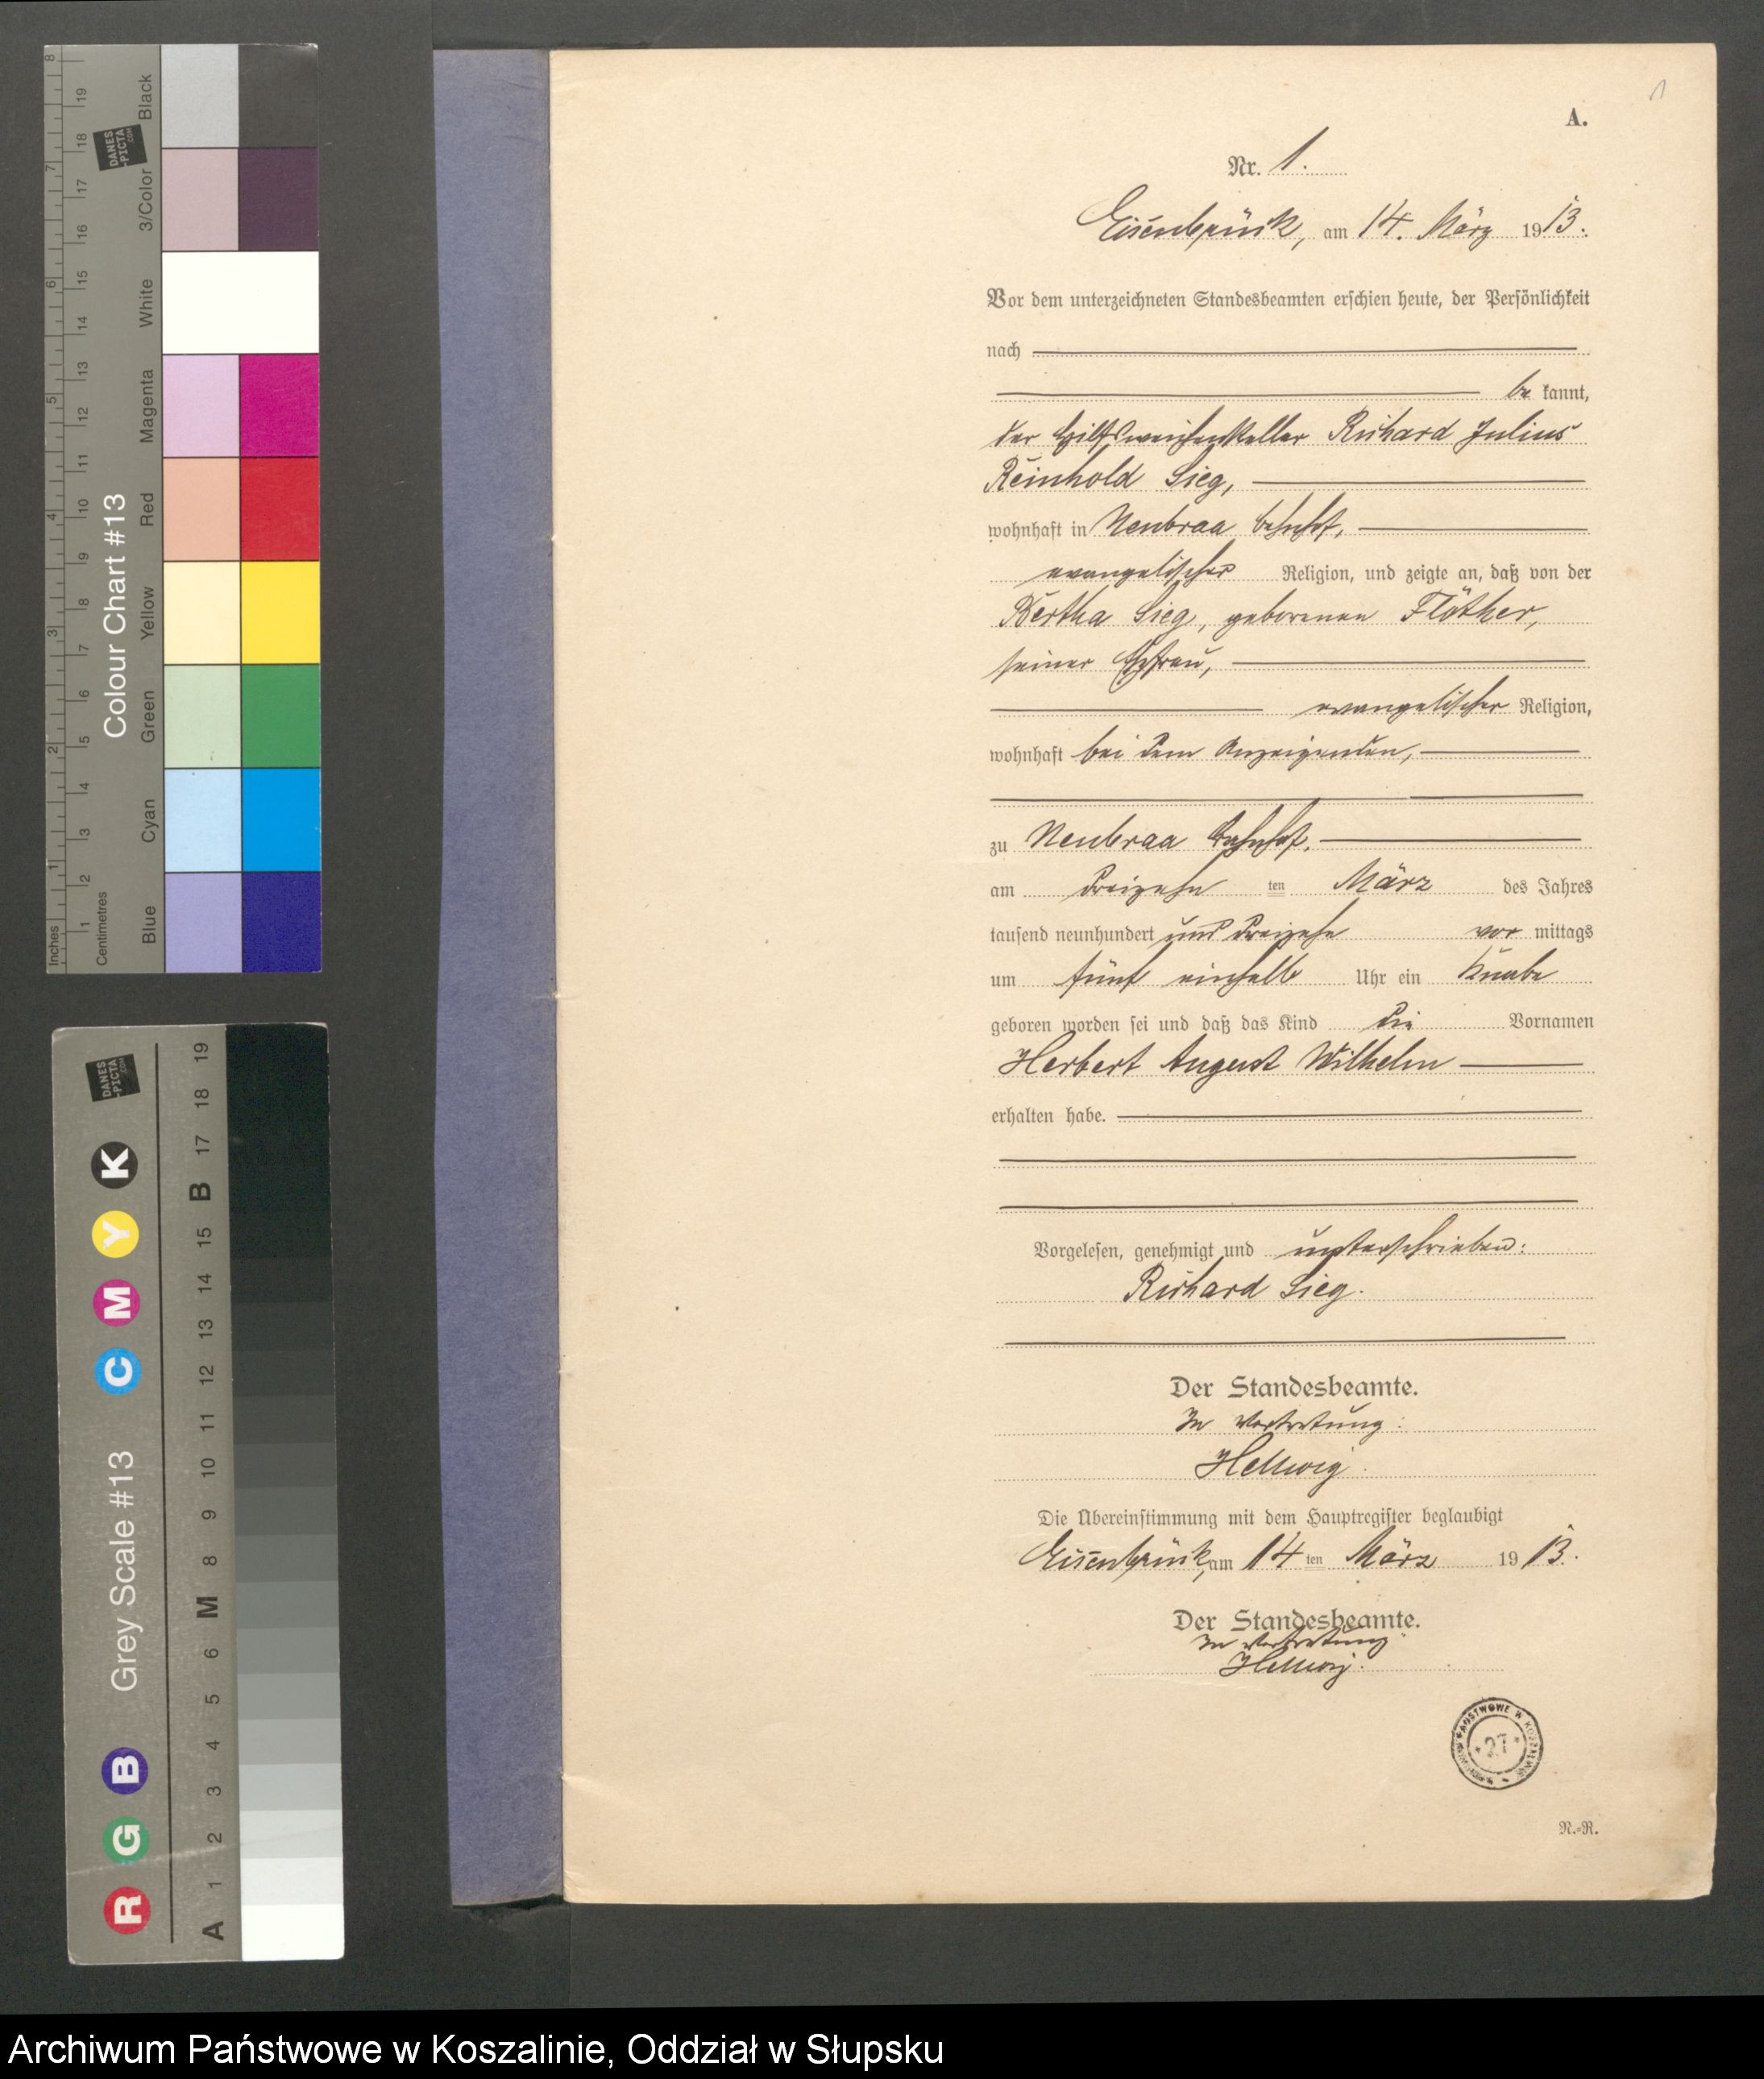 A.
Nr. 1.
Eisenbrück, am 14. März 1913.
Vor dem unterzeichneten Standesbeamten erschien heute, der Persönlichkeit
nach
be kannt,
der Hilfsweichensteller Richard Julius
Reinhold Sieg,
wohnhaft in Neubraa Bahnhof,
evangelischer Religion, und zeigte an, daß von der
Bertha Sieg, geborenen Flöther,
seiner Ehefrau,
evangelischer Religion,
wohnhaft bei dem Anzeigenden,
zu Neubraa Bahnhof,
am dreizehn ten März des Jahres
tausend neunhundert und dreizehn vor mittags
um fünf einhalb Uhr ein Knabe
geboren worden sei und daß das Kind die Vornamen
Herbert August Wilhelm
erhalten habe.
Vorgelesen, genehmigt und unterschrieben:
Richard Sieg.
Der Standesbeamte.
In Vertretung:
Hellwig.
Die Übereinstimmung mit dem Hauptregister beglaubigt
Eisenbrück, am 14 ten März 1913.
Der Standesbeamte.
In Vertretung:
Hellwig.
PAŃSTWOWE W KOSZALINIE
* 27 *
N.-R.
Colour Chart #13
Blue Cyan Green Yellow Red Magenta White 3/Color Black
Inches 1 2 3 4 5 6 7 8
Centimetres 1 2 3 4 5 6 7 8 9 10 11 12 13 14 15 16 17 18 19
DANES
-PICTA
.COM
Grey Scale #13
R G B C M Y K
A 1 2 3 4 5 6 M 8 9 10 11 12 13 14 15 B 17 18 19
DANES
-PICTA
.COM
Archiwum Państwowe w Koszalinie, Oddział w Słupsku